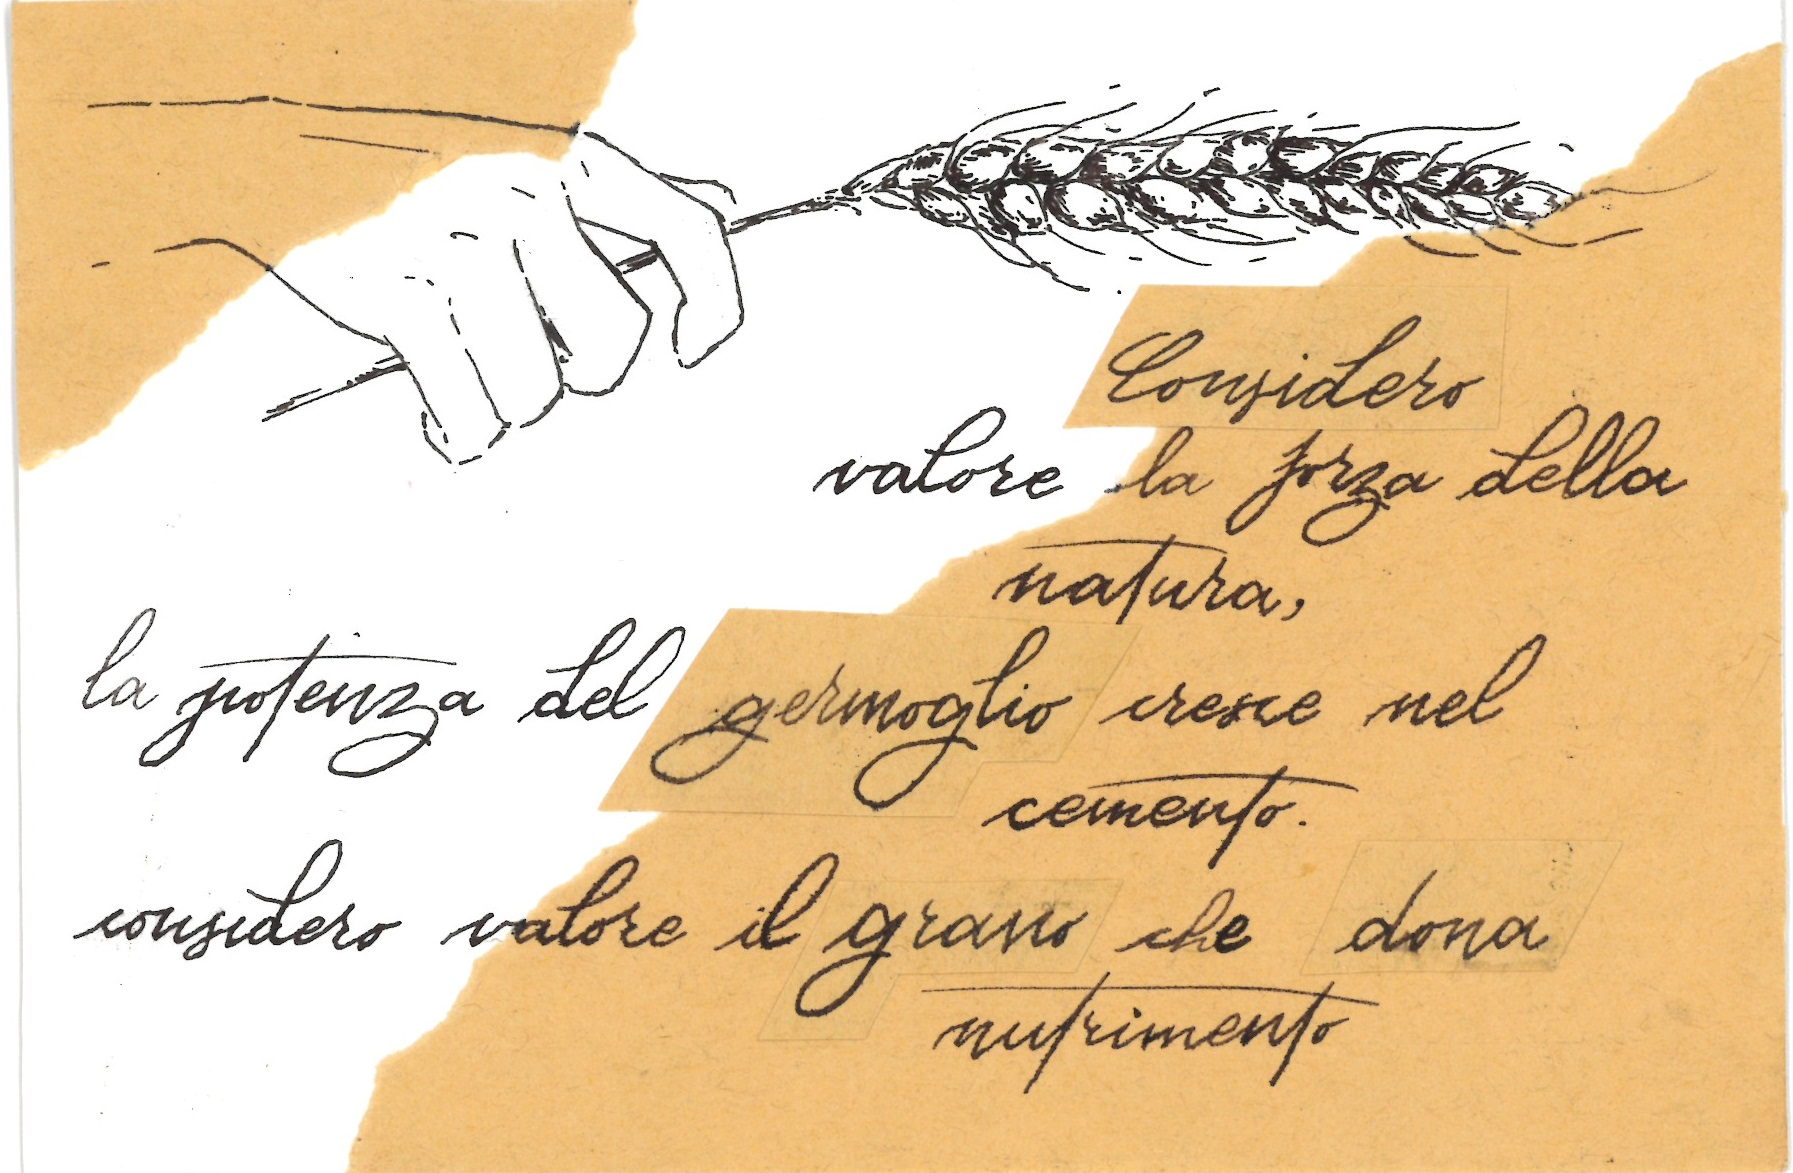 Considero
valore la forza della
natura,
la potenza del germoglio cresce nel
cemento.
considero valore il grano che dona
nutrimento